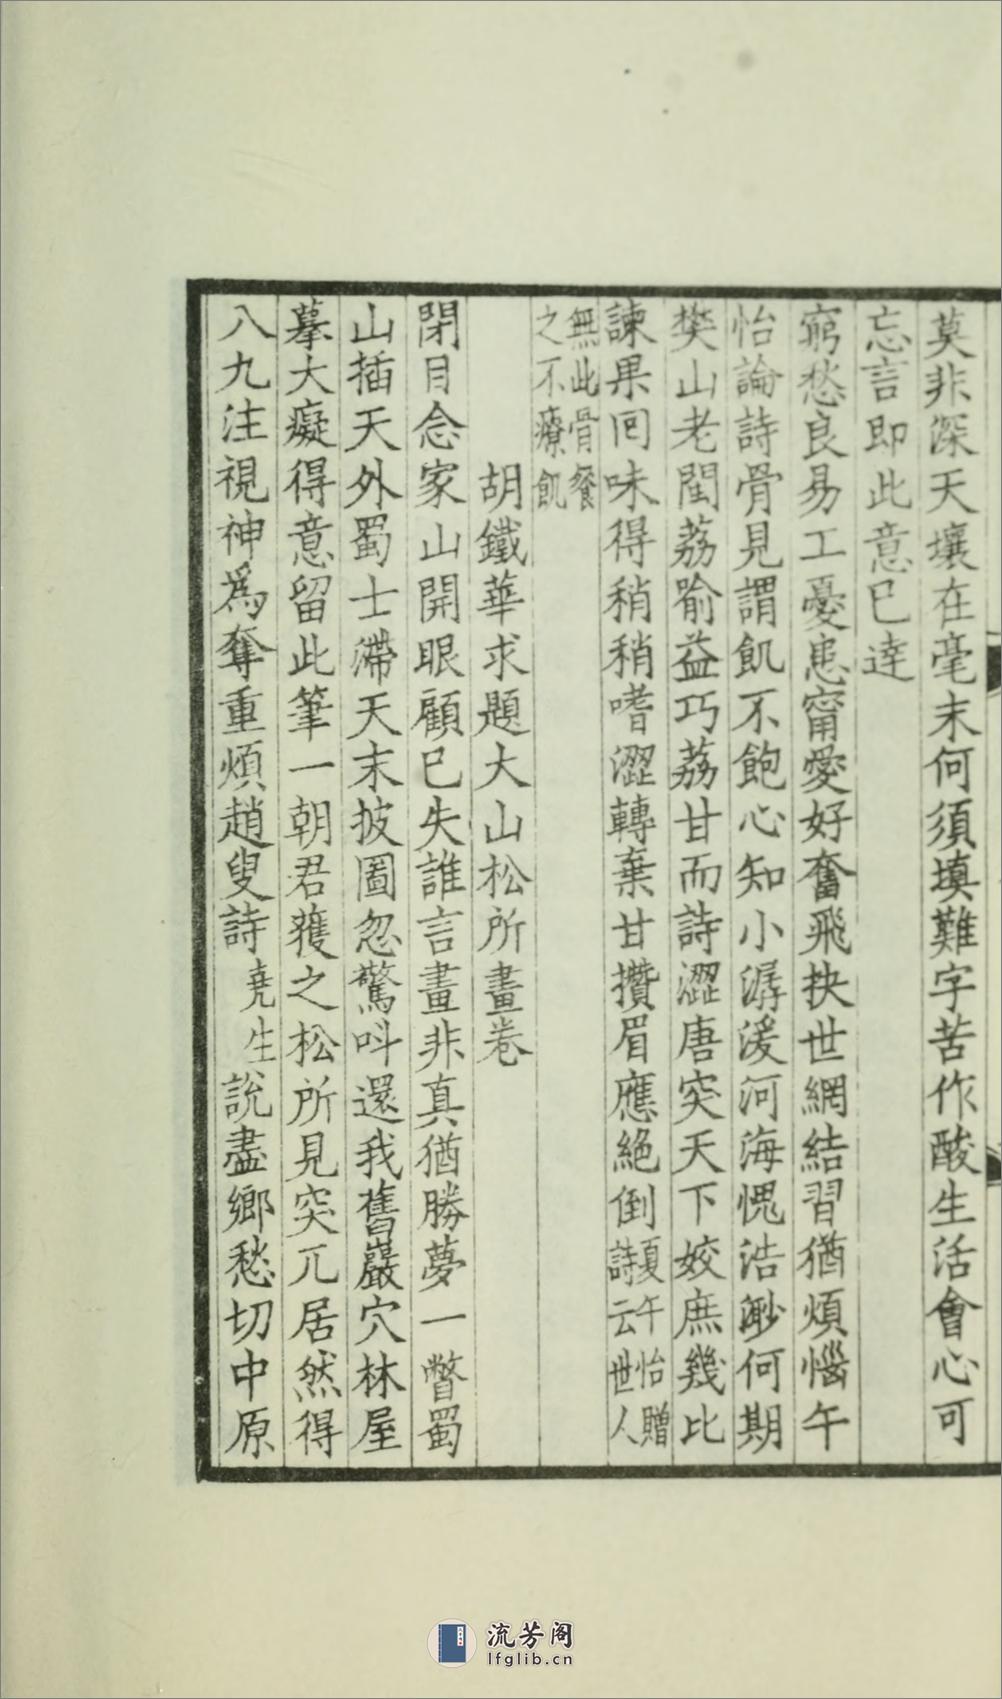 莫非深天壤在毫末何須填難字苦作酸生活會心可
忘言即此意已達
窮愁良易工憂患甯愛好奮飛抉世網結習猶煩惱午
怡論詩骨見謂飢不飽心知小潺湲河海愧浩渺何期
樊山老閏荔喻益巧荔甘而詩澀唐突天下姣庶幾比
諫果回味得稍稍嗜澀轉棄甘攢眉應絕倒夏午怡贈
詩云世人
無此骨餐
之不療飢
胡鐵華求題大山松所畫卷
閉目念家山開眼顧已失誰言畫非真猶勝夢一瞥蜀
山插天外蜀士滯天末披圖忽驚呌還我舊巖穴林屋
摹大癡得意留此筆一朝君獲之松所見突兀居然得
八九注視神為奪重煩趙叟詩堯生說盡鄉愁切中原
流芳阁
lfglib.cn